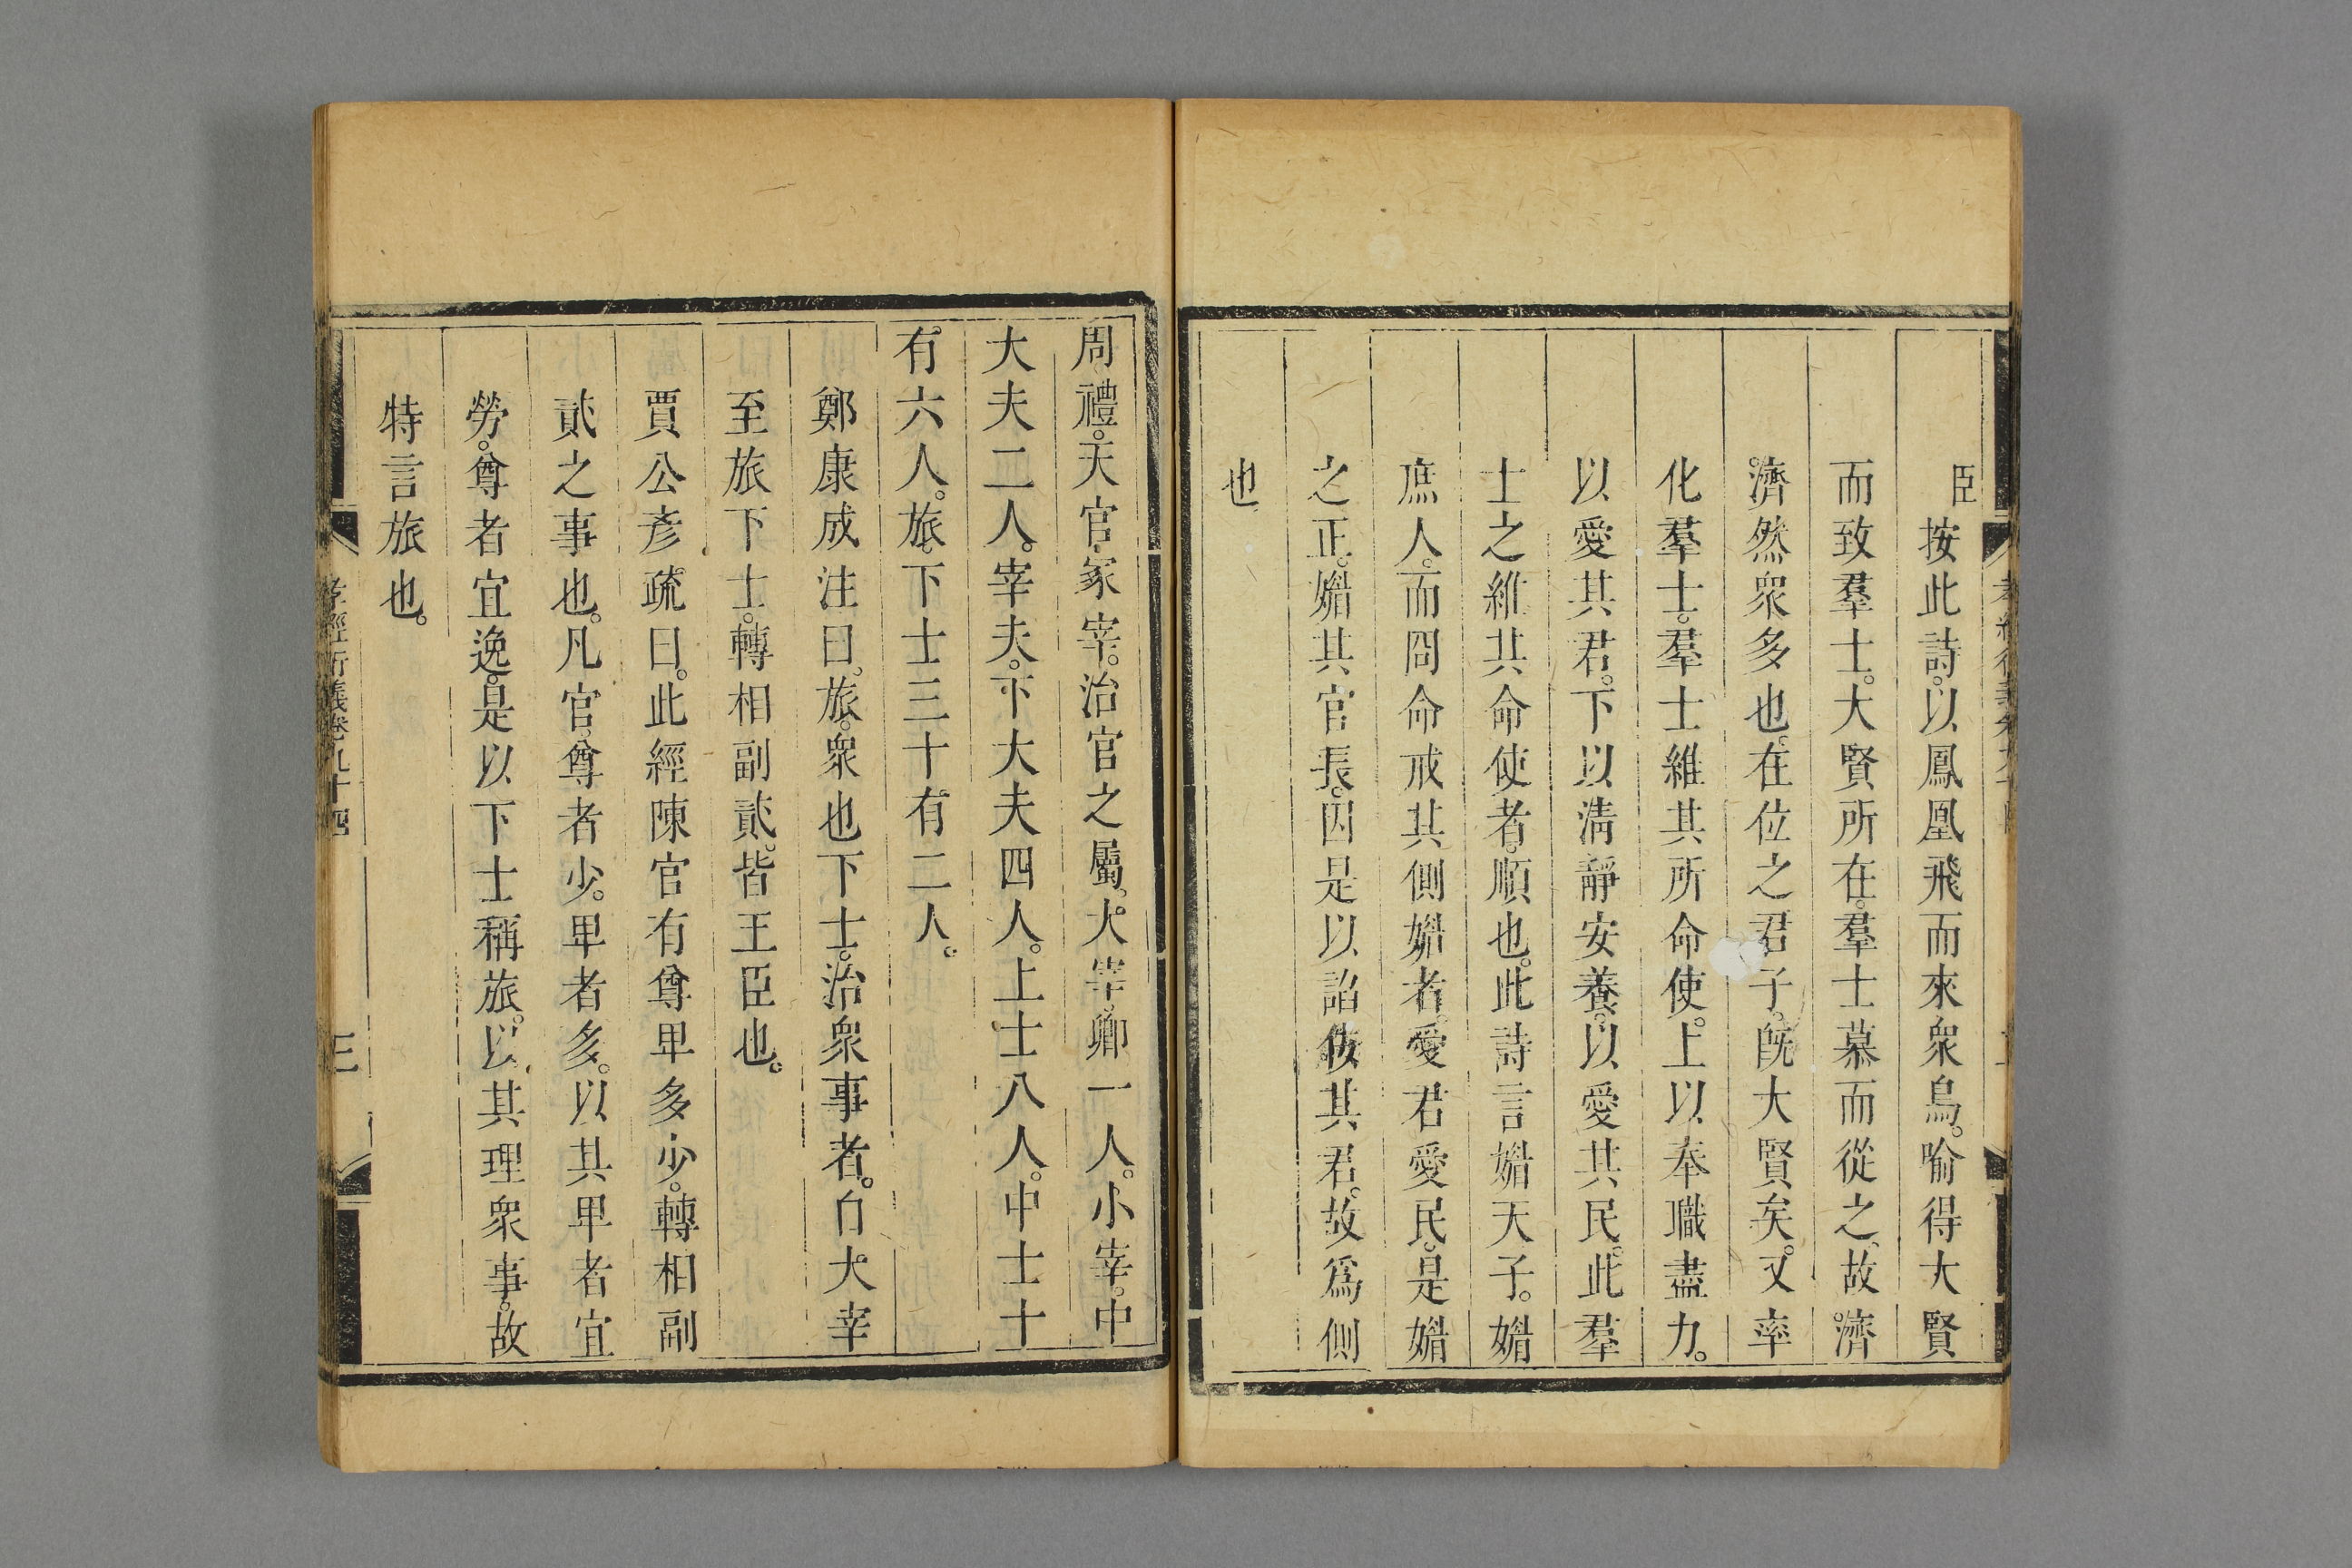 臣按此詩。以鳳凰飛而來衆鳥。喻得大賢
而致羣士。大賢所在。羣士慕而從之、故濟
濟然衆多也。在位之君子。旣大賢矣。又率
化羣士。羣士維其所命使。上以奉職盡力。
以愛其君。下以清靜安養。以愛其民。此羣
士之維其命使者。順也。此詩言媚天子。媚
庶人。而冏命戒其側媚者。愛君愛民。是媚
之正。媚其官長。因是以諂佞其君。故爲側
也
周禮。天官冢宰。治官之屬。大宰。卿一人。小宰。中
大夫二人。宰夫。下大夫四人。上士八人。中士十
有六人。旅。下士三十有二人。
鄭康成注曰、旅。衆也下士。治衆事者。自大宰
至旅下士。轉相副貳。皆王臣也。
賈公彥疏曰。此經陳官有尊卑多少。轉相副
貳之事也。凡官尊者少。卑者多。以其卑者宜
勞。尊者宜逸。是以下士稱旅。以其理衆事。故
特言旅也。
孝經衍義卷九十四
三